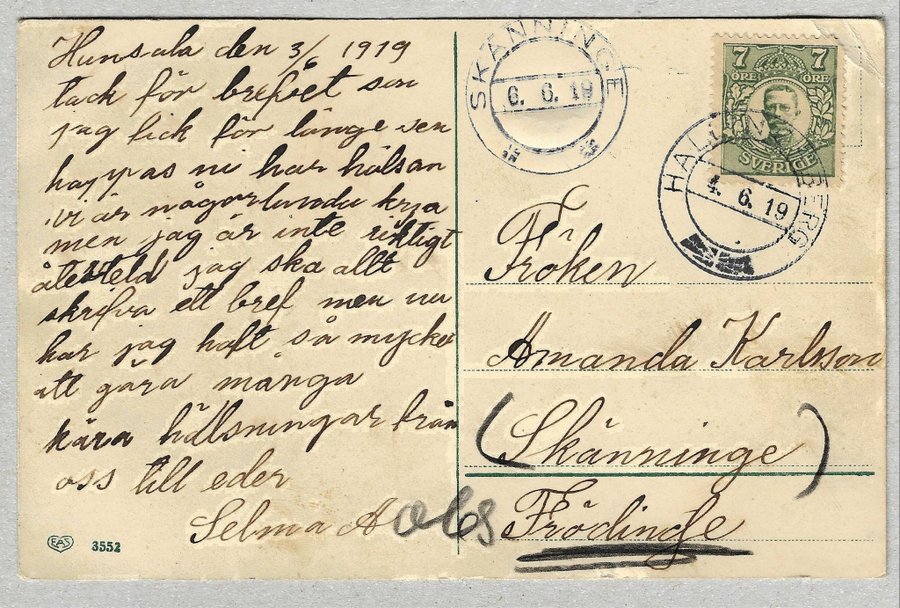 Hunsala den 3/ 1919
tack för brefvet som
jag fick för länge sen
hoppas ni har hälsan
vi är någorlunda krya
men jag är inte riktigt
återsteld jag ska allt
skrifva ett bref men nu
har jag haft så mycket
att göra många
kära hälsningar från
oss till eder
Selma A
EAS 3552
SKÄNNINGE
6. 6. 19
7 7
ÖRE ÖRE
SVERIGE
4. 6. 19
Fröken
Amanda Karlsson
(Skänninge)
obs Frödinge